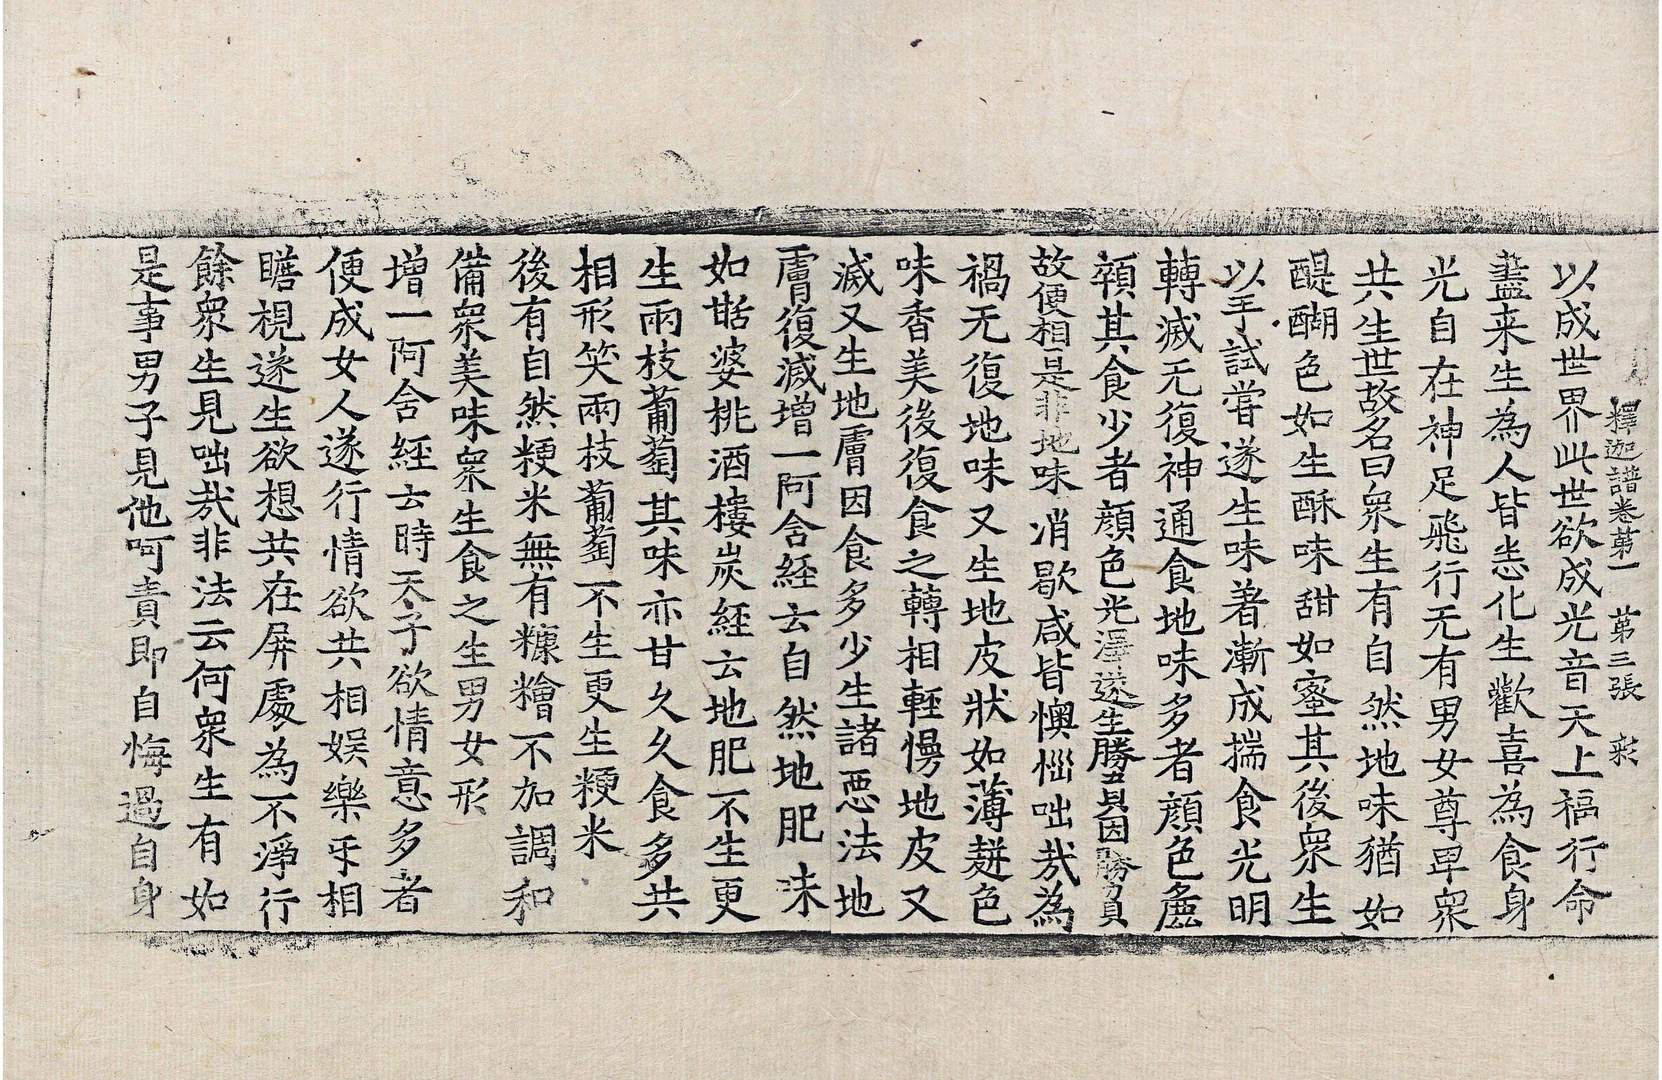 釋迦譜卷第一　第三張　彩
以成世界此世欲成光音天上福行命
盡来生為人皆恙化生歡喜為食身
光自在神足飛行无有男女尊卑衆
共生世故名曰衆生有自然地味猶如
醍醐色如生酥味甜如蜜其後衆生
以手試嘗遂生味著漸成揣食光明
轉滅无復神通食地味多者顔色麁
顇其食少者顔色光澤遂生勝負因勝負
故便相是非地味消歇咸皆懊惱咄哉為
禍无復地味又生地皮狀如薄䴵色
味香美後復食之轉相輕慢地皮又
滅又生地膚因食多少生諸惡法地
膚復滅增一阿含経云自然地肥味
如甛婆桃酒樓炭経云地肥不生更
生兩枝葡萄其味亦甘久久食多共
相形笑兩枝葡萄不生更生粳米
後有自然粳米無有糠糩不加調和
備衆美味衆生食之生男女形
增一阿含経云時天子欲情意多者
便成女人遂行情欲共相娛樂乎相
瞻視遂生欲想共在屏處為不淨行
餘衆生見咄哉非法云何衆生有如
是事男子見他呵責即自悔過自身